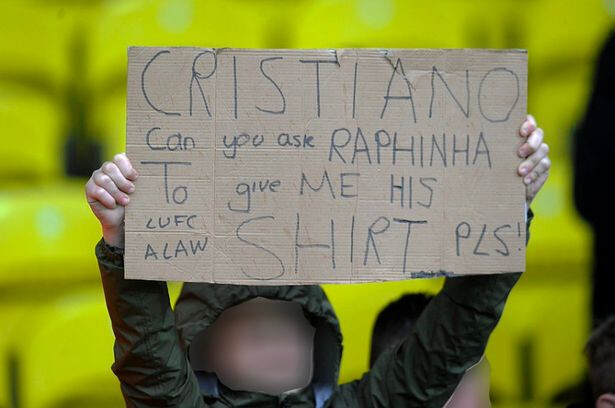 CRISTIANO
Can you ask RAPHINHA
To give ME HIS
LUFC
ALAW SHIRT PLS!